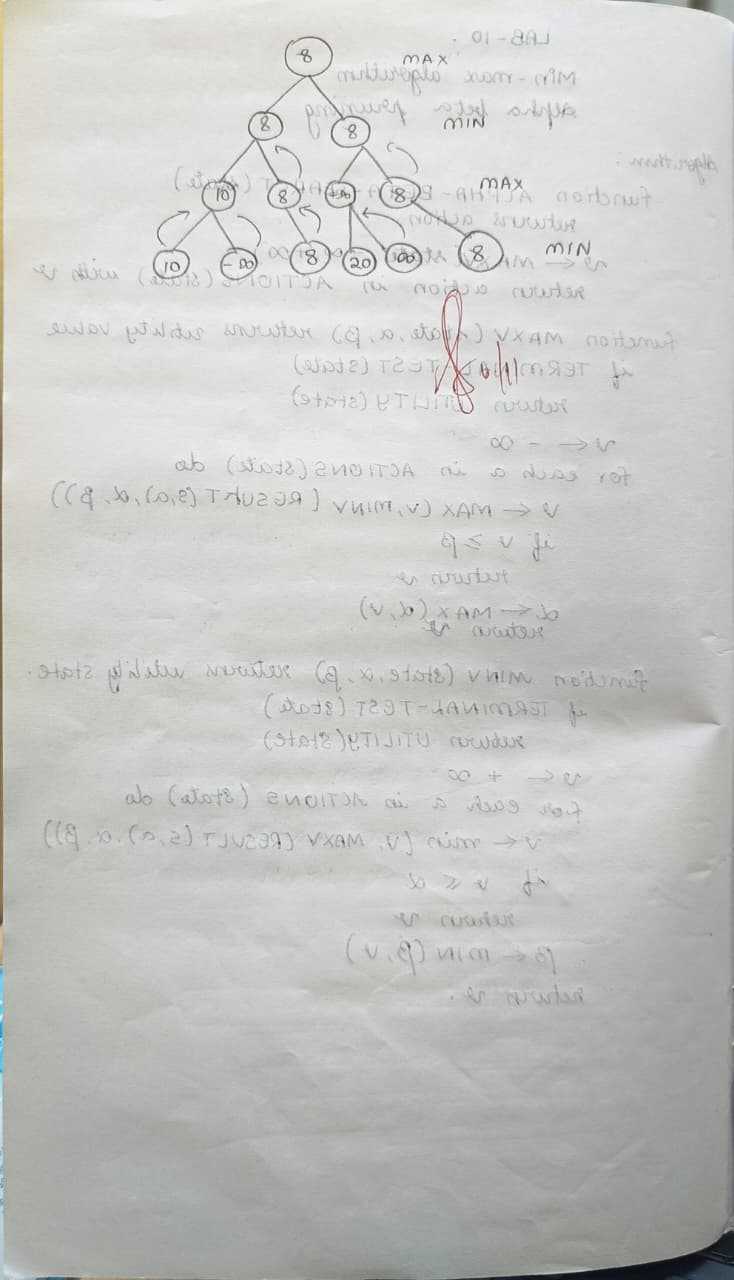 LAB-10.
8 MAX
Min-max algorithm
alpha beta pruning
8 8 MIN
Algorithm:
function ALPHA-BETA- (state)
10 8 8 MAX
returns action
10 -∞ 8 20 8 MIN
return action in ACTIONS (state) with v
function MAXV (state, α, β) returns utility value
if TERMINAL TEST (state)
return UTILITY (state)
v ← - ∞
for each a in ACTIONS (state) do
v ← MAX (v, MINV (RESULT (s,a), α, β))
if v ≥ β
return v
α ← MAX (α, v)
return v
function MINV (state, α, β) returns utility state.
if TERMINAL-TEST (state)
return UTILITY (state)
v ← + ∞
for each a in ACTIONS (state) do
v ← min (v, MAXV (RESULT (s,a), α, β))
if v ≤ α
return v
β ← MIN (β, v)
return v.